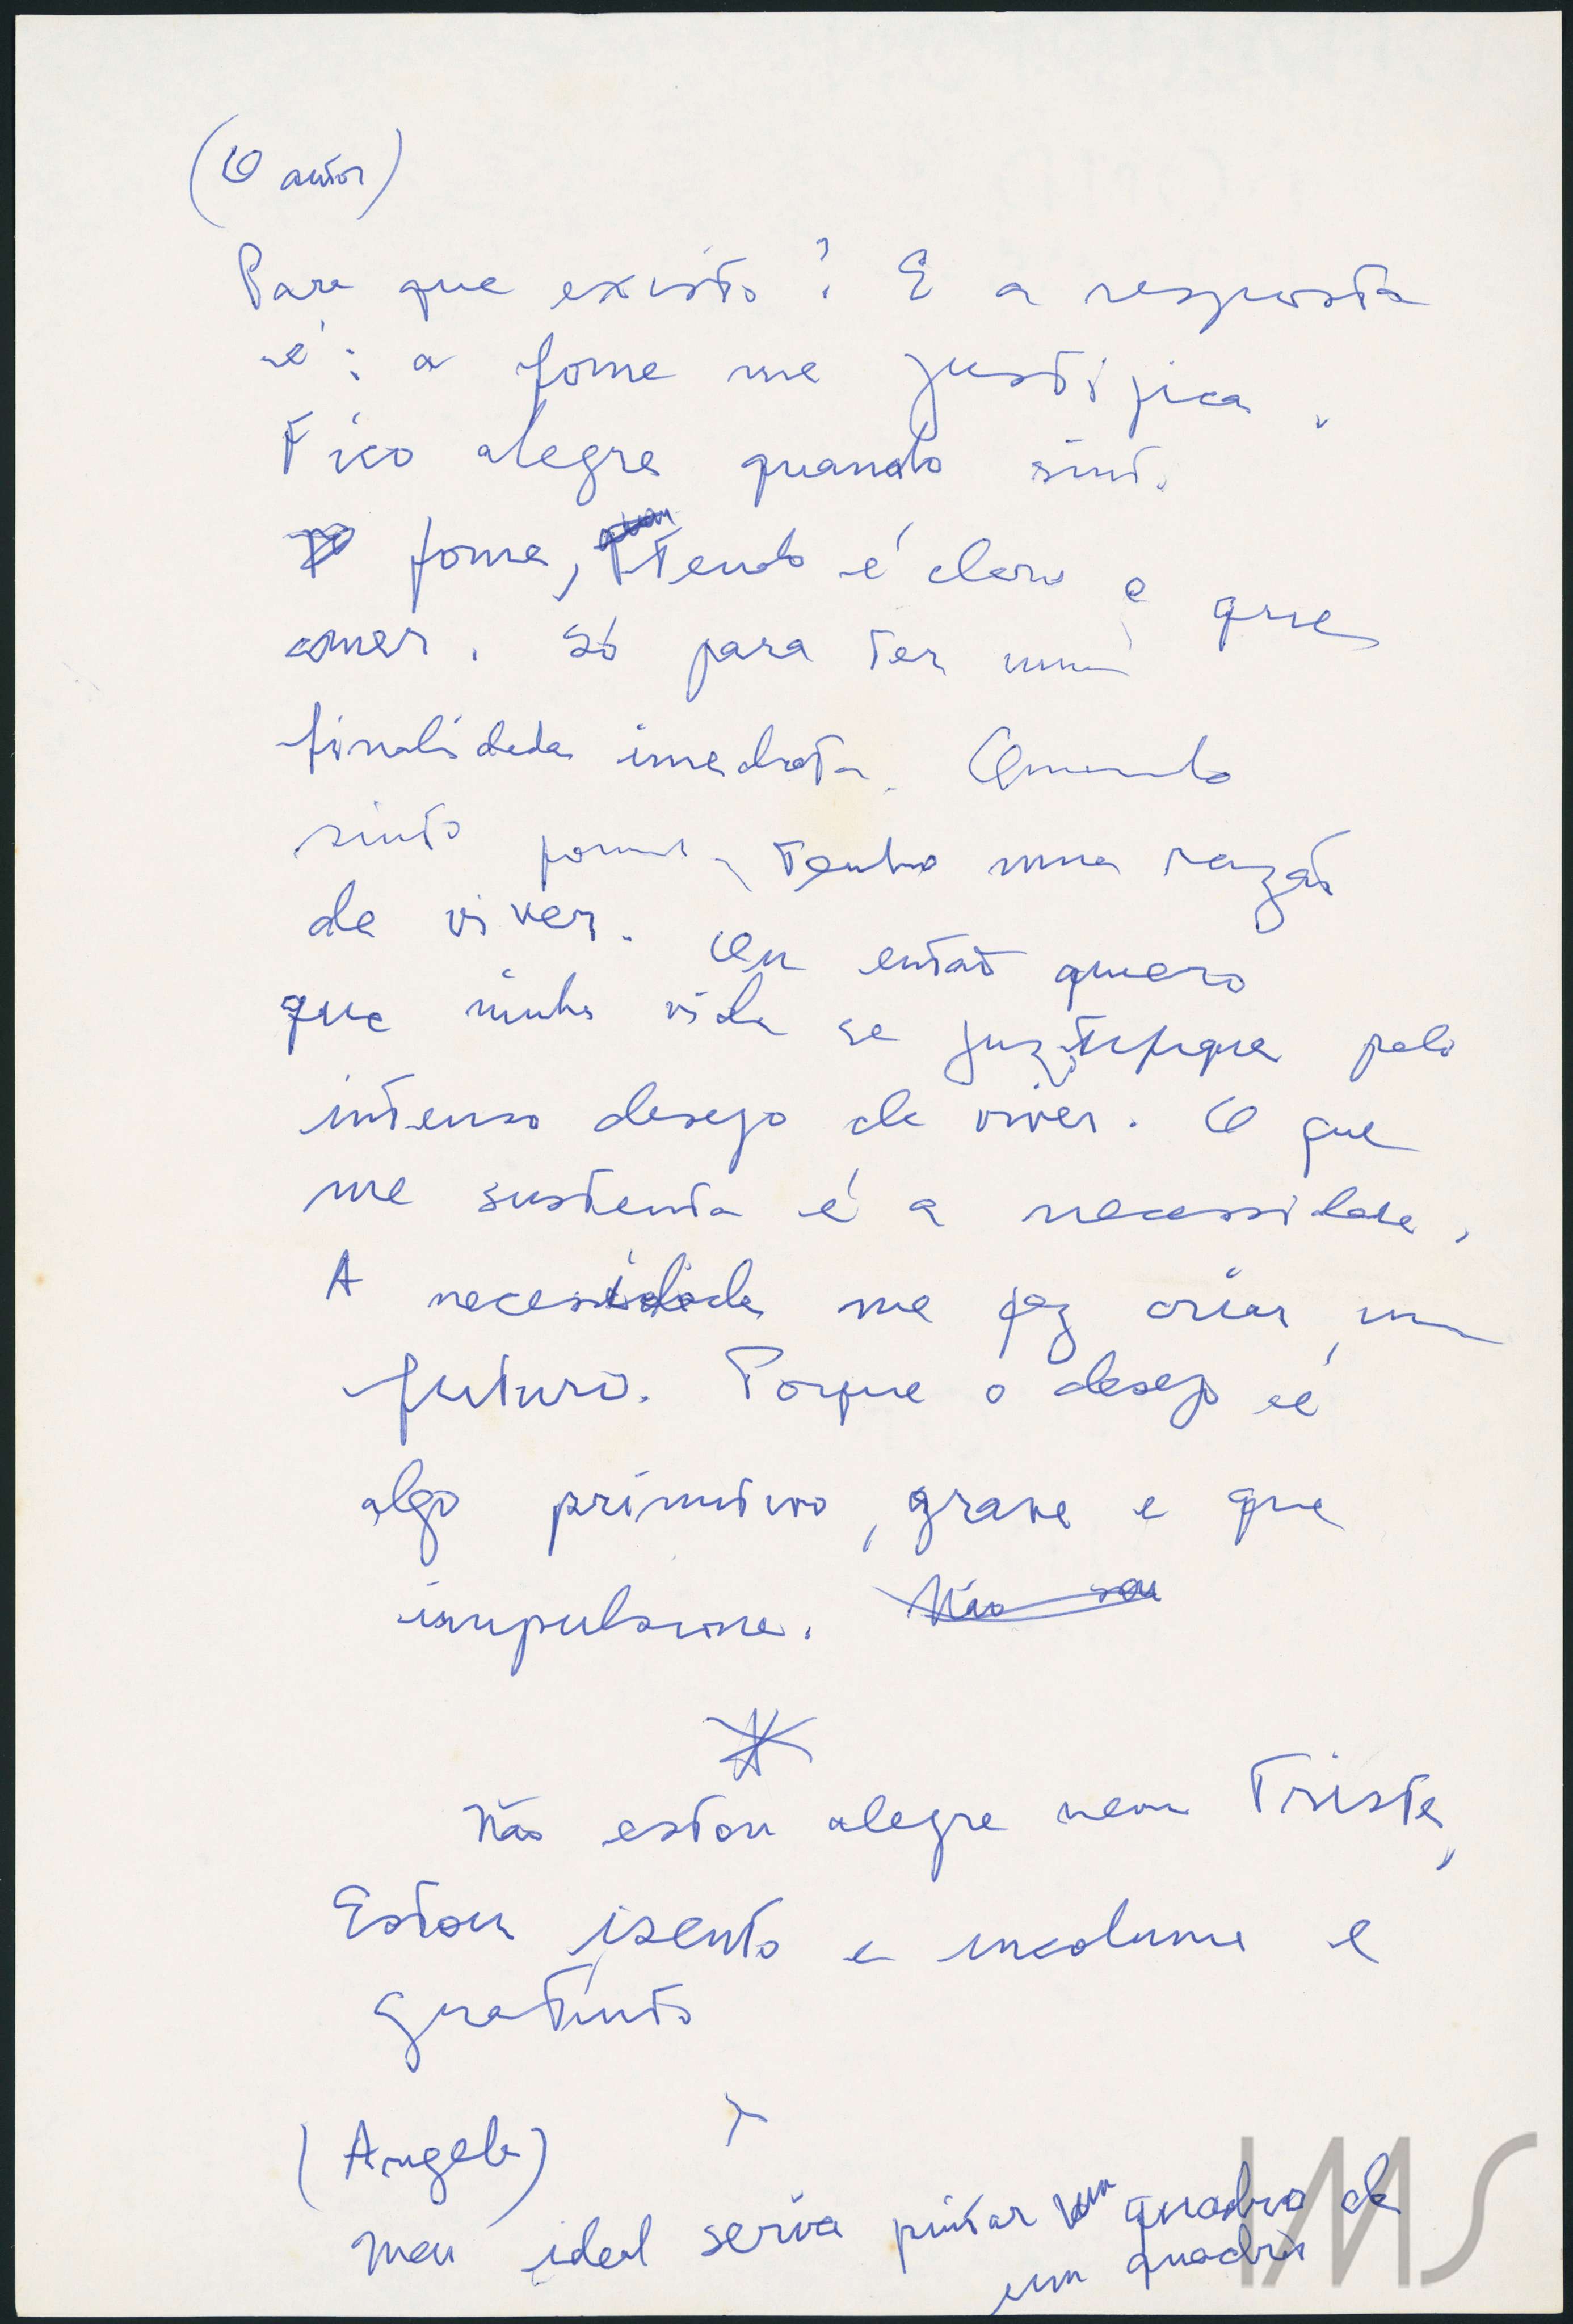 (O autor)
Para que existo? E a resposta
é: a fome me justifica.
Fico alegre quando sinto
fome, tendo é claro o que
comer. Só para ter uma
finalidade imediata. Quando
sinto fome, tenho uma razão
de viver. Ou então quero
que minha vida se justifique pelo
intenso desejo de viver. O que
me sustenta é a necessidade.
A necessidade me faz criar um
futuro. Porque o desejo é
algo primitivo, grave e que
impulsiona. Não sou
*
Não estou alegre nem triste,
Estou isento e incolume e
gratuito
(Angela)
Meu ideal seria pintar um quadro de
um quadro
IMS